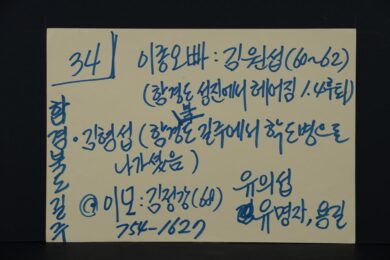 34
이종오빠: 김원섭(60~62)
(함경도 성진에서 헤어짐 1.4후퇴)
함경북도길주
· 김형섭 (함경북도 길주에서 학도병으로
나가셨음)
@ 이모: 김정강(68)
754-1627
유의섭
유명자, 용길